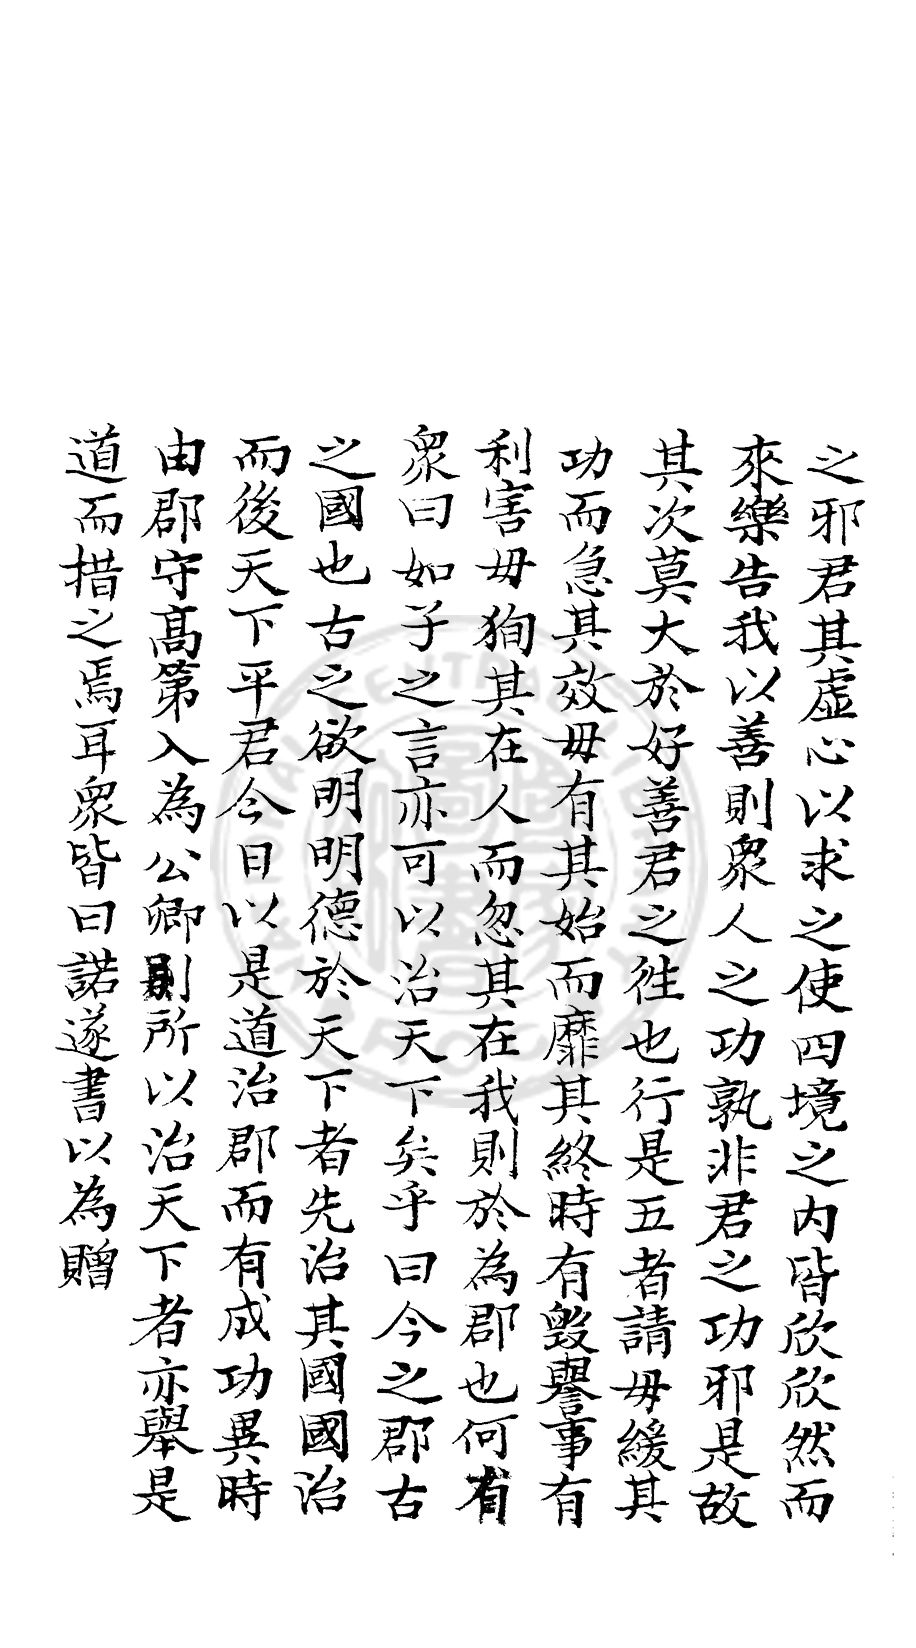 之邪君其虛心以求之使四境之內皆欣欣然而
來樂告我以善則衆人之功孰非君之功邪是故
其次莫大於好善君之徃也行是五者請毋緩其
功而急其效毋有其始而靡其終時有毀譽事有
利害毋狥其在人而忽其在我則於為郡也何有
衆曰如子之言亦可以治天下矣乎曰今之郡古
之國也古之欲明明德於天下者先治其國國治
而後天下平君今日以是道治郡而有成功異時
由郡守高第入為公卿則所以治天下者亦舉是
道而措之焉耳衆皆曰諾遂書以為贈